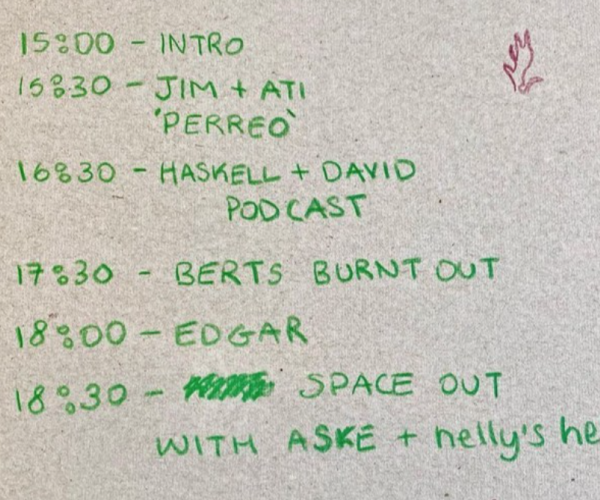 15:00 - INTRO
15:30 - JIM + ATI
'PERREO'
16:30 - HASKELL + DAVID
PODCAST
17:30 - BERTS BURNT OUT
18:00 - EDGAR
18:30 - SPACE OUT
WITH ASKE + nelly's he